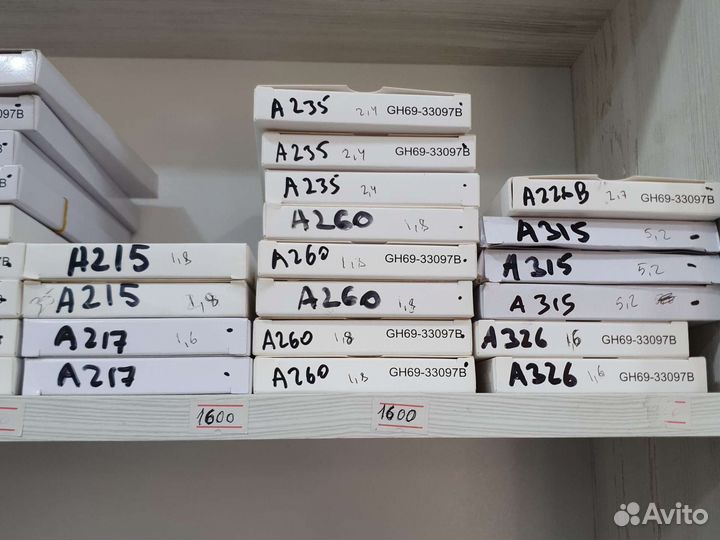 097B
B
A215 1,8
A215 1,8
A217 1,6
A217
A235 2,4 GH69-33097B
A235 2,4 GH69-33097B
A235 2,4
A260 1,8
A260 1,8 GH69-33097B
A260 1,8
A260 1,8 GH69-33097B
A260 1,8 GH69-33097B
2,7 GH69-33097B
A315 5,2
A315 5,2
A315 5,2
A326 1,6 GH69-33097B
A326 1,6 GH69-33097B
1600
1600
Avito